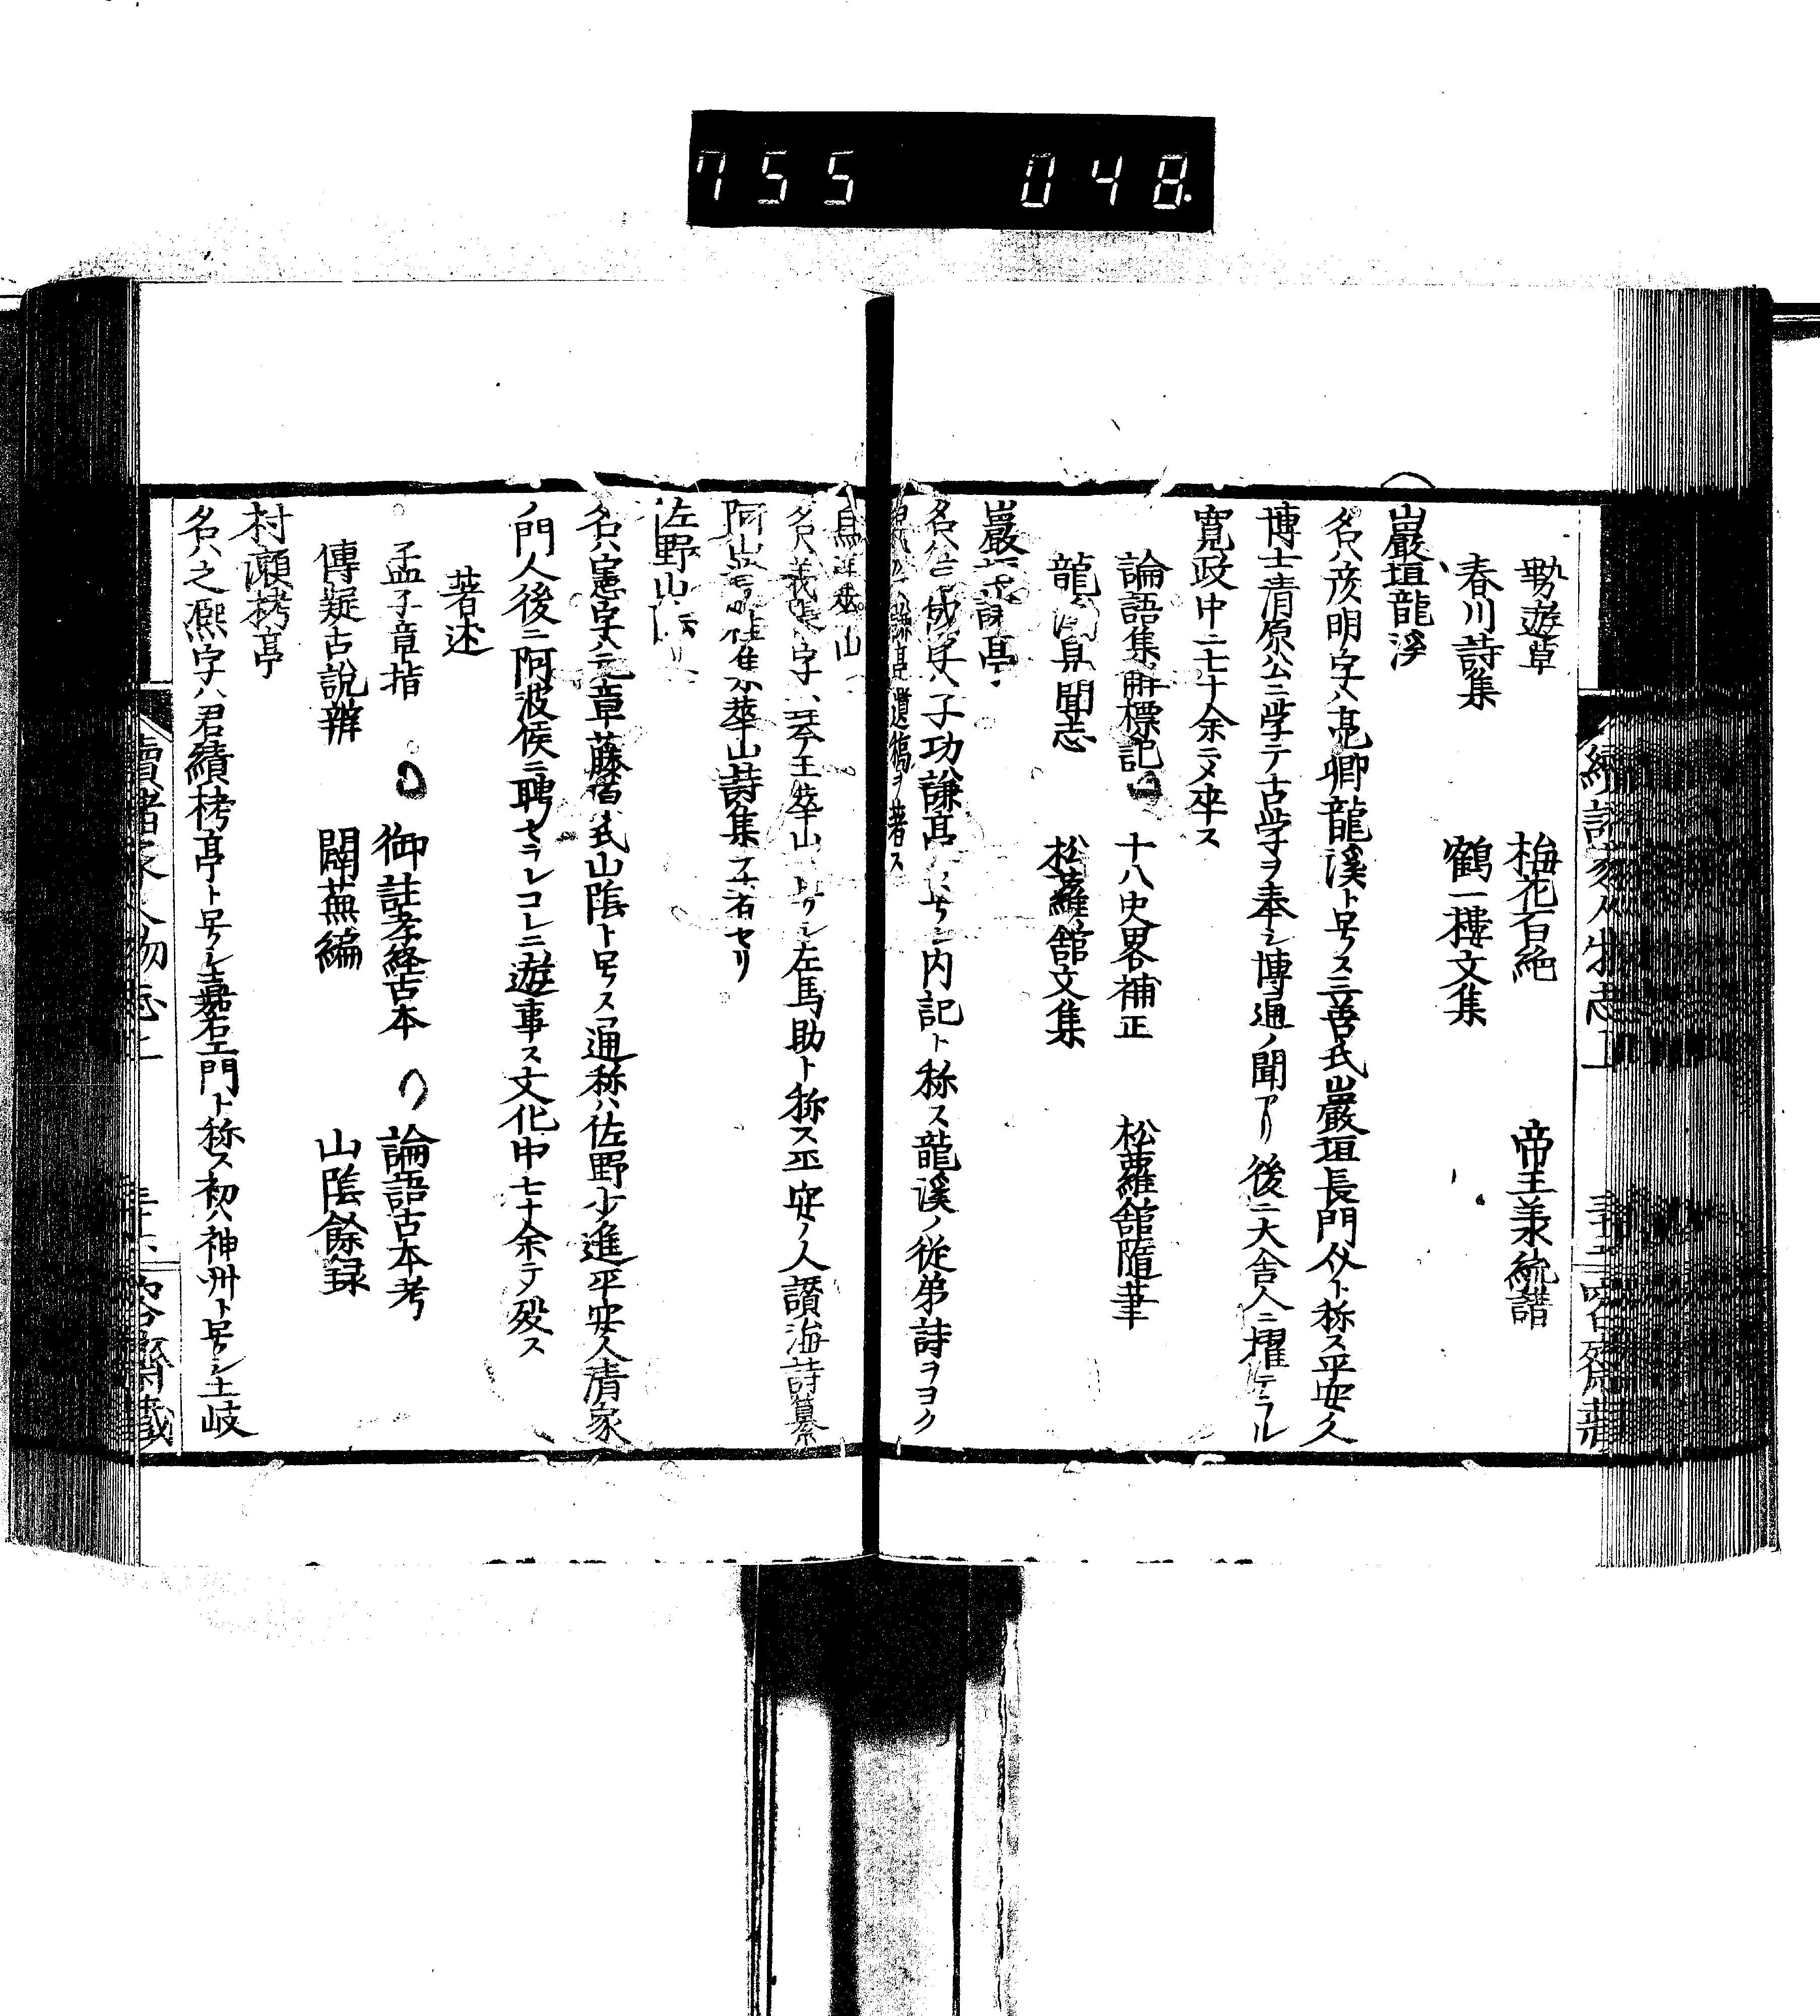 755 048
勢遊草 梅花百絶 帝王兼統譜
春川詩集 鶴一樓文集
巖垣龍溪
名ハ彦明字ハ亮卿龍溪ト号ス三善氏巖垣長門介ト称ス平安ノ人
博士清原公ニ学テ古学ヲ奉シ博通ノ聞アリ後ニ大舎人ニ擢テラル
寛政中ニ七十余ニメ卒ス
論語集解標記 十八史畧補正 松蘿舘隨筆
龍溪見聞志 松蘿舘文集
巖垣謙亭
字ハ子功謙亭ト号シ内記ト称ス龍溪ノ従弟詩ヲヨク
謙亭遺稿ヲ著ス
山
名ハ義張字ハ琴王華山ト号シ左馬助ト称ス平安ノ人讃海詩纂
華山詩集
佐野山陰
名ハ憲字ハ元章藤原氏山陰ト号ス通称ハ佐野少進平安ノ人清家
ノ門人後ニ阿波侯ニ聘セラレコレニ遊事ス文化中七十余テ歿ス
著述
孟子章指 御註孝経古本 論語古本考
傳疑古説辨 闢蕪編 山陰餘録
村瀬栲亭
名ハ之熙字ハ君績栲亭ト号シ嘉右エ門ト称ス初ハ神州ト号シ土岐